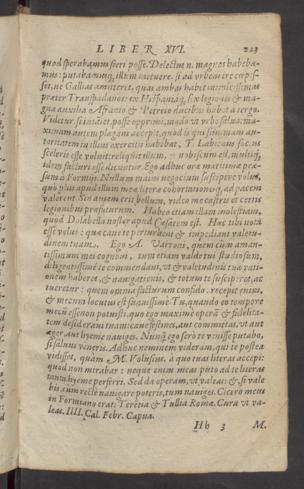 LIBER XVI. 223
quod sperabamus fieri posse. Delectus n. magnos habeba-
mus: putabamusq; illum metuere, si ad urbem ire cœpis-
set, ne Gallias amitteret, quas ambas habet inimicissimas
præter Transpadanos: ex Hispaniaq; sex legiones & ma-
gna auxilia Afranio & Petreio ducibus habet à tergo.
Videtur, si insaniet, posse opprimi, modo ut urbe salua. ma-
ximam autem plagam accepit, quòd is qui summam au-
toritatem in illius exercitu habebat, T. Labienus soc.us
sceleris esse voluit: reliquit illum, & nobiscum est, multiq;
idem facturi esse dicuntur. Ego adhuc oræ maritimæ præ-
sum à Formijs. Nullum maius negocium suscipere volui,
quò plus apud illum meæ literæ cohortationesq; ad pacem
valerent. Sin autem erit bellum, video me castris et certis
legionibus præfuturum. Habeo etiam illam molestiam,
quod Dolabella noster apud Cæsarem est. Hæc tibi nota
esse volui: quæ caue te perturbent & impediant valetu-
dinem tuam. Ego A. Varroni, quem cùm aman-
tissimum mei cognoui, tum etiam valde tui studiosum,
diligentissimè te commendaui, ut & valetudinis tuæ ratio-
nem haberet, & nauigationis, & totum te susciperet, ac
tueretur: quem omnia facturum confido. recepit enim,
& mecum locutus est suauissimè. Tu, quando eo tempore
mecum esse non potuisti, quo ego maximè operã & fidelita-
tem desideraui tuam: caue festines, aut committas, ut aut
æger, aut hyeme nauiges. Nunq̃ sero te venisse putabo,
si saluus veneris. Adhuc neminem videram, qui te postea
vidisset, quàm M. Volusius, à quo tuas literas accepi:
quod non mirabar: neque enim meas puto ad te literas
tanta hyeme perferri. Sed da operam, ut valeas: & si vale
bis, cum rectè nauigare poteris, tum nauiges. Cicero meus
in Formiano erat: Terẽtia & Tullia Romæ. Cura ut va-
leas. IIII. Cal. Febr. Capua.
Hh 3 M.